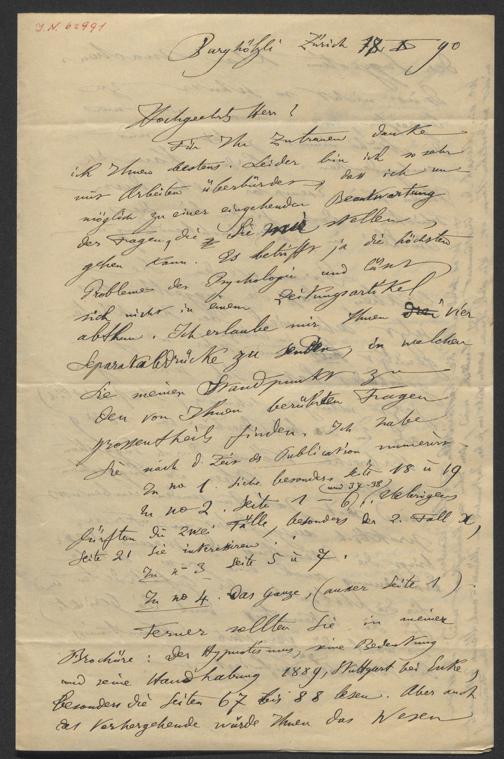 J.N. 62991
Burghölzli Zürich 18. X 90
Hochgeehrter Herr!
Für Ihr Zutrauen danke
ich Ihnen bestens. Leider bin ich so sehr
mit Arbeiten überbürdet, dass ich un-
möglich zu einer eingehenden Beantwortung
der Fragen, die Sie mir stellen
gehen kann. Es betrifft ja die höchsten
Probleme der Psychologie und lässt
sich nicht in einem Zeitungsartikel
abthun. Ich erlaube mir Ihnen drei vier
Separatabdrücke zu senden, in welchen
Sie meinen Standpunkt zu
den von Ihnen berührten Fragen
grossentheils finden. Ich habe
sie nach d. Zeit der Publication numerirt
In no 1. siehe besonders Seite 18 u 19
(und 37-38)
In no 2. Seite 1 – 6. Uebrigens
dürften die zwei Fälle, besonders der 2. Fall
Seite 21 Sie interessiren.
In no 3 Seite 5 u 7.
In no 4. das ganze, (ausser Seite 1).
Ferner sollten Sie in meiner
Brochüre: Der Hypnotismus, seine Bedeutung
und seine Handhabung 1889, Stuttgart bei Enke,
besonders die Seiten 67 bis 88 lesen. Aber auch
das Vorhergehende würde Ihnen das Wesen